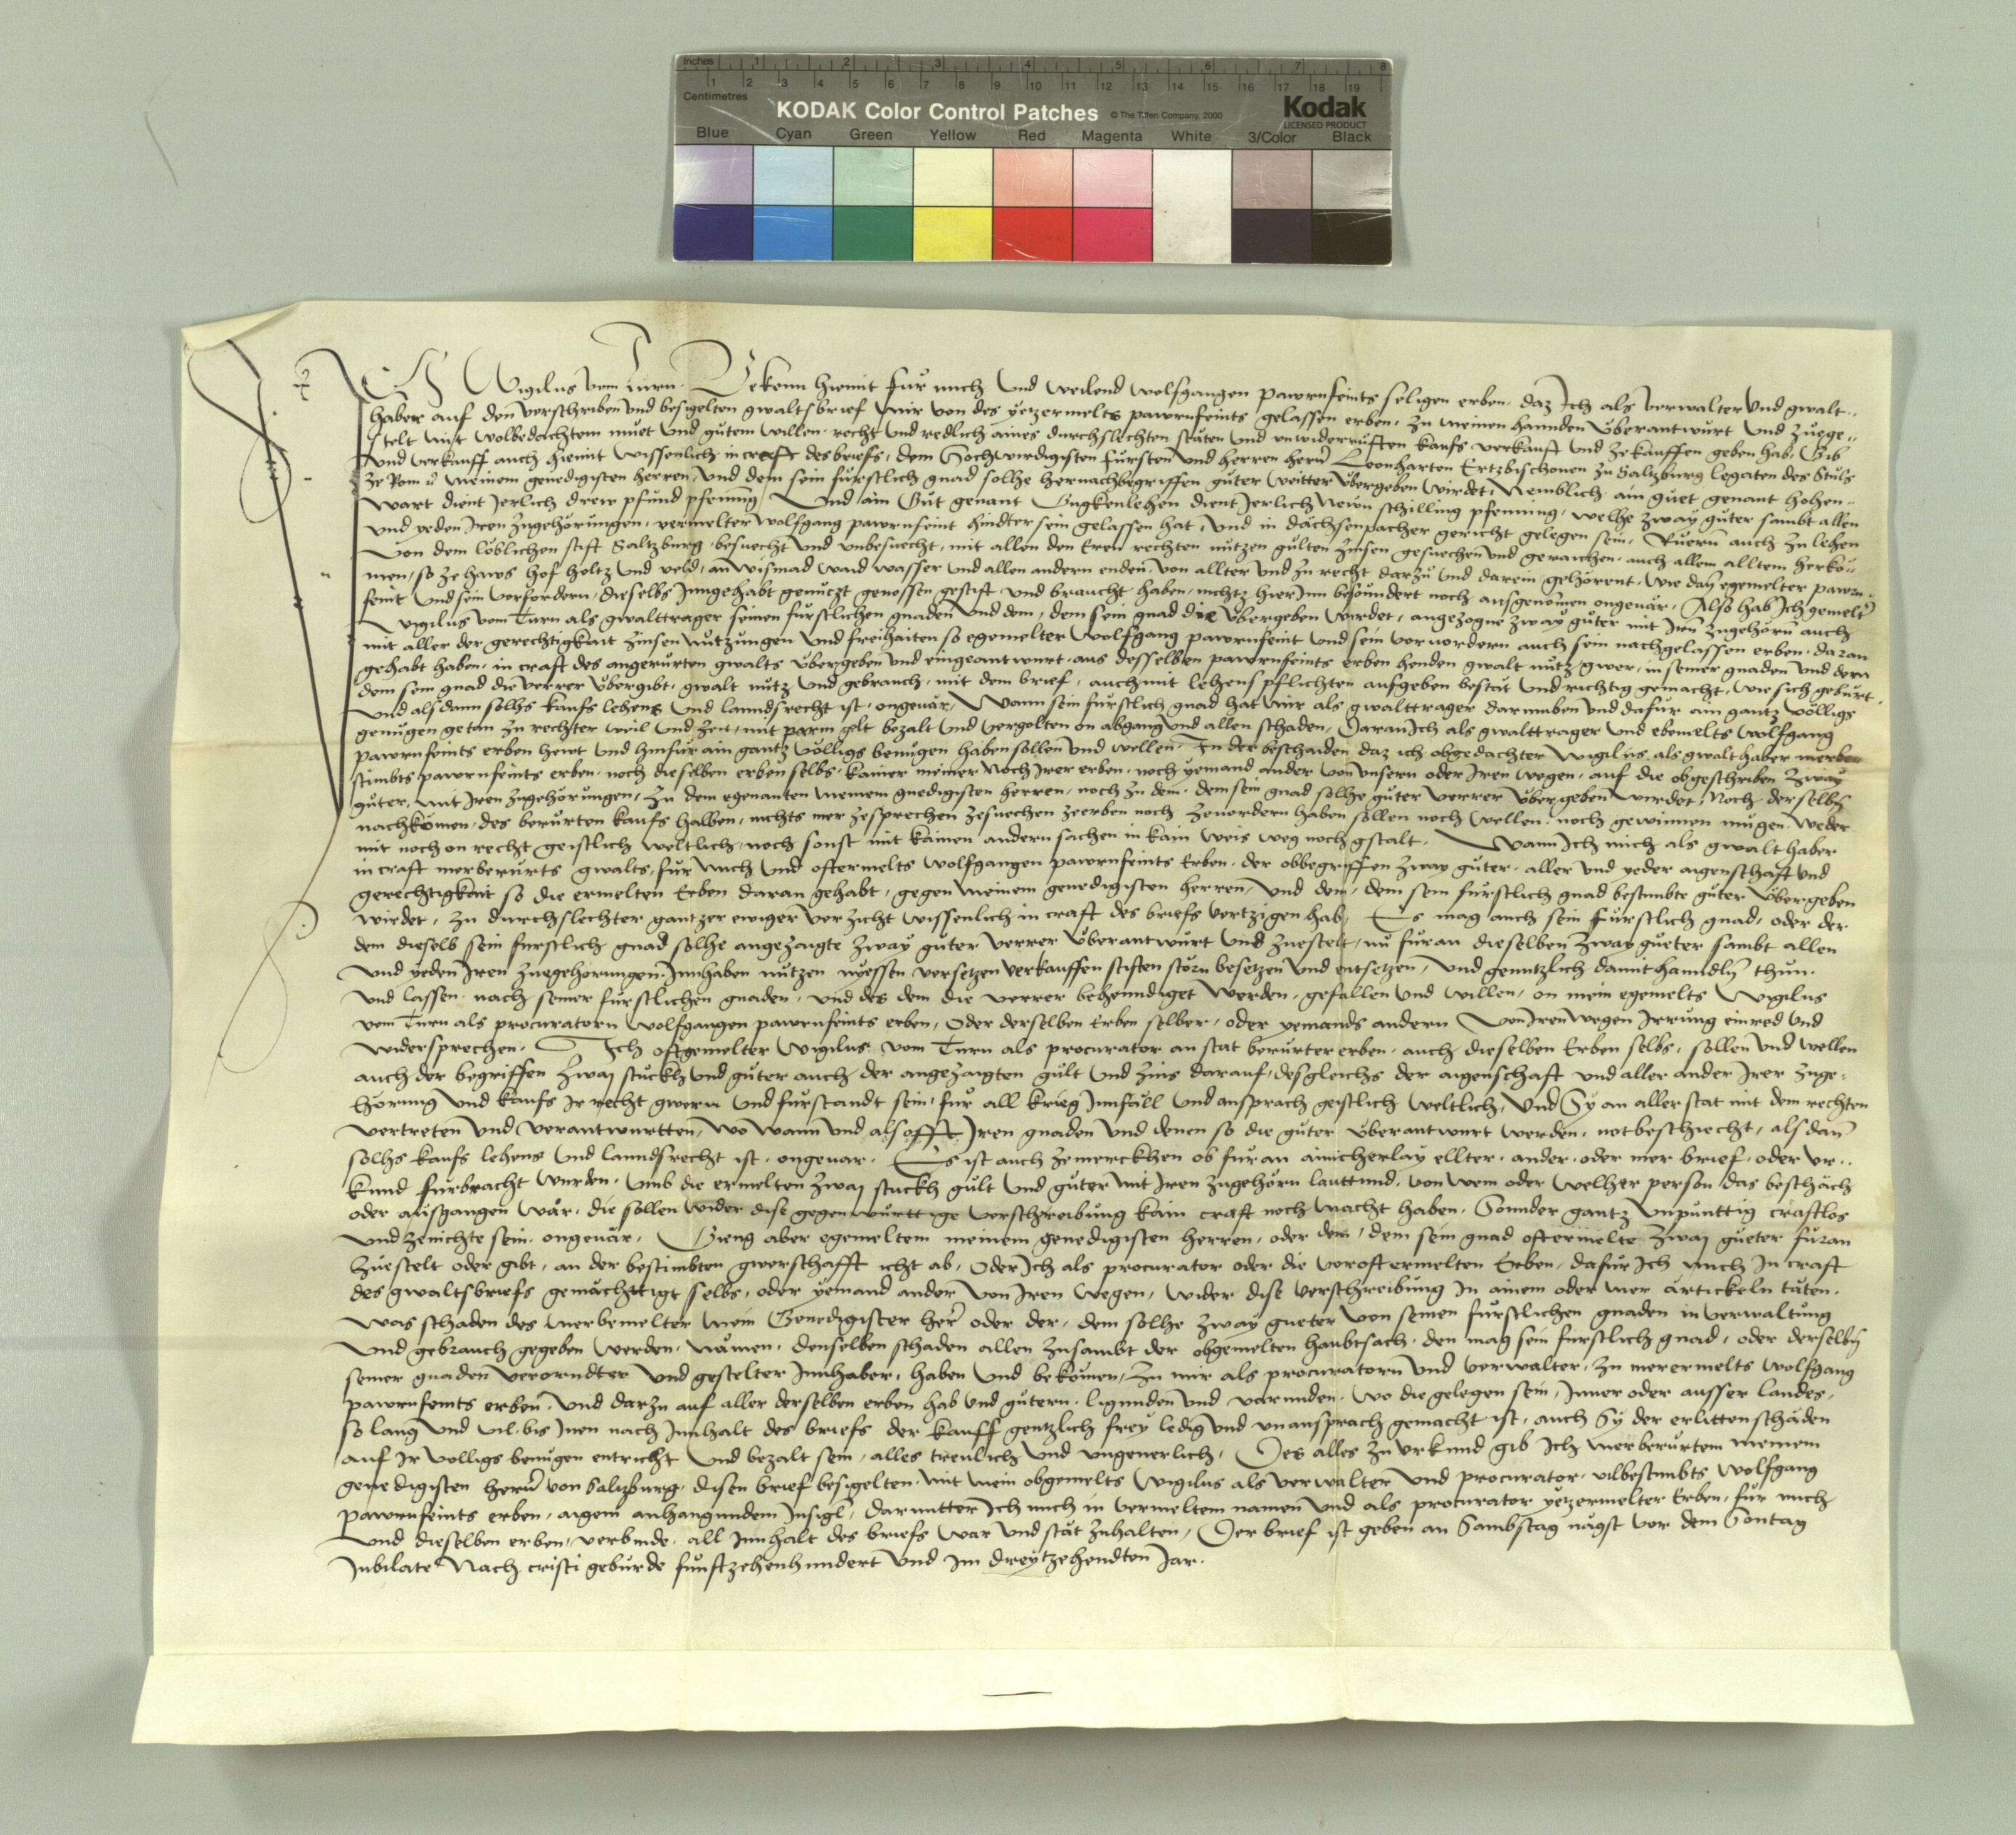 Inches 1 2 3 4 5 6 7 8
Centimetres 1 2 3 4 5 6 7 8 9 10 11 12 13 14 15 16 17 18 19
KODAK Color Control Patches © The Tiffen Company, 2000 Kodak
LICENSED PRODUCT
Blue Cyan Green Yellow Red Magenta White 3/Color Black
ICH Wigilus vom Turn. Bekenn hiemit fur mich und weilend wolfgangen pawrnfeints seligen erben. daz Ich als verwalter und gwalt..
haber auf den verschriben und besigelten gwaltsbrief mir von des yetzermelts pawrnfeints gelassen erben. zu meinen hannden überantwurt und zuege..
stelt mit wolbedachtem muet und gutem willen. recht und redlich aines durchslechten stäten und unwiderrufften kaufs verkauft und ze kauffen geben hab. Gib
und verkauff auch hiemit wissenlich in craft des briefs, dem Hochwirdigisten fursten und herren hern Leonharten Ertzbischouen zu Saltzburg legaten des Stuls
ze Rom meinem genedigisten herren, und dem sein furstlich gnad solhe hernachbegriffen güter weitter übergeben wirdet, Nemblich ain guet genant hohen..
wart dient Jerlich drew pfund pfenning Und ain Gut genant Lugkenlehen dient Jerlich Newn schilling pfenning, welhe zway güter sambt allen
und yeden Iren zugehörungen, vermelter wolfgang pawrnfeint hindter sein gelassen hat, und in dächsenpacher gericht gelegen sein, Ruern auch zu lehen
von dem löblichen stift Saltzburg. besuecht und unbesuecht, mit allen den Eren rechten nutzen gülten zinsen gesuechen und geraichen, auch allem alltem herko..
men, so ze haws hof holtz und veld, an wismad waid wasser und allen andern enden, von allter und zu recht darzu und darein gehörent, wie dan egemelter pawrn..
feint und sein vorfordern, dieselbs Inngehabt genutzt genossen gestift und braucht haben, nichtz hierInn besonndert noch ausgenomen ongeuär, Also hab Ich gemelt
Wigilus vom Turn als gwalttrager seinen furstlichen gnaden und dem, dem sein gnad die übergeben wirdet, angezogne zway güter mit Irn zugehörn auch
mit aller der gerechtigkait zinsen nutzungen und freihaiten so egemelter wolfgang pawrnfeint und sein vorvordern auch sein nachgelassen erben. daran
gehabt haben, in craft des angerurten gwalts übergeben und eingeantwurt, aus desselben pawrnfeints erben henden gwalt nutz gwer, in seiner gnaden und dem
dem sein gnad die verrer übergibt, gwalt nutz und gebrauch, mit dem brief, auch mit lehens pflichten aufgeben bestät und richtig gemacht, wie sich geburt,
und als dann solhs kaufs lehens und lanndsrecht ist, ongeuär, Wann sein furstlich gnad hat mir als gwalttrager darumben und dafur ain gantz völligs
genugen getan zu rechter weil und Zeit, mit parm gelt bezalt und vergolten on abgang und allen schaden, Daran Ich als gwalttrager und ebemelts wolfgang
pawrnfeints erben hewt und hinfur ain gantz völligs benugen haben sollen und wellen, In der beschaiden daz ich obgedachter wigilus als gwalthaber merbe
stimbts pawrnfeints erben. noch dieselben erben selbs, kainer meiner noch Irer erben, noch yemand ander von unsern oder Iren wegen, auf die obgeschriben zway
güter, mit Iren zugehörungen, zu dem egenanten meinem gnedigisten herren, noch zu dem, dem sein gnad solhe güter verrer übergeben wirdet, Noch derselbn
nachkomen, des berurten kaufs halben, nichts mer zesprechen zesuechen zeerben noch zeuordern haben sollen noch wellen, noch gewinnen mugen weder
mit noch on recht geistlich weltlich, noch sonst mit kainen andern sachen in kain weis weg noch gstalt. Wann Ich mich als gwalthaber
in craft merberurts gwalts, fur mich und oftermelts wolfgangen pawrnfeints Erben. der obbegriffen zway güter, aller und yeder aigenschaft und
gerechtigkait so die ermelten Erben daran gehabt, gegen meinem genedigisten herren, und dem, dem sein furstlich gnad bestimbte güter übergeben
wirdet, zu durchslechter gantzer ewiger verzicht wissenlich in craft des briefs vertzigen hab, Es mag auch sein furstlich gnad, oder der
dem dieselb sein furstlich gnad solhe angezaigte zway güter verrer überantwurt und zuestelt, nu furan dieselben zway gueter sambt allen
und yeden Iren zuegehorungen Innhaben nützen nyessen versetzen verkauffen stiften störn besetzen und entsetzen, und genntzlich damit hanndln thun.
und lassen, nach seiner furstlichen gnaden, und des dem die verrer behenndiget werden, gefallen und willen, on mein egemelts Wigilus
vom Turn als procuratorn wolfgangen pawrnfeints erben, Oder derselben Erben selber, oder yemands andern von Iren wegen Irrung einred und
widersprechen. Ich oftgemelter Wigilus vom Turn als procurator an stat berurter erben, auch dieselben Erben selbs, sollen und wellen
auch der begriffen zway stuckh und güter auch der angezaigten gult und zins darauf, desgleichs der aigenschaft und aller ander Irer zuge,
hörung und kaufs Ir recht gwern und furstandt sein, fur all krieg Innfäll und ansprach geistlich weltlich, Und Sy an aller stat mit dem rechten
vertreten und verantwurtten, wo wann und als offt Iren gnaden und denen so die güter überantwurt werden, notbeschiecht, als dan
solhs kaufs lehens und lanndsrecht ist, ongeuar. Es ist auch zemerckhen ob furan ainicherlay ellter, ander, oder mer brief, oder ur..
kund furbracht wurden, umb die ermelten zway stuckh gült und güter mit Iren zugehörn lauttund, von wem oder welher person das beschäch
oder ausgangen wär, die sollen wider dise gegenwurttige verschreibung kain craft noch macht haben, Sonnder gantz unpunttig craftlos
und zenichte sein, ongeuär, Gieng aber egemeltem meinem genedigisten herren, oder dem, dem sein gnad oftermelte zway gueter furan
zuestelt oder gibt, an der bestimbten gwerschafft icht ab, Oder Ich als procurator oder die voroftermelten Erben, dafur Ich mich in craft
des gwaltsbriefs gemächttigt selbs, oder yemand ander von Iren wegen, wider dise verschreibung In ainem oder mer artickeln täten,
was schaden des merbemelter mein Genedigister her oder der, dem solhe zway gueter von seinen furstlichen gnaden in verwaltung
und gebrauch gegeben werden, nämen, denselben schaden allen zusambt der obgemelten haubtsach, den mag sein furstlich gnad, oder derselbn
seiner gnaden verorndter und gestelter Innhaber, haben und bekomen, zu mir als procuratorn und verwalter, zu merermelts wolfgang
pawrnfeints erben, und darzu auf aller derselben erben hab und gütern, ligunden und varunden, wo die gelegen sein, Inner oder ausser landes,
so lang und vil, bis Inen nach Innhalt des briefs der kauff gentzlich frey ledig und unansprach gemacht ist, auch Sy der erlitten schäden
auf Ir volligs benugen entricht und bezalt sein, alles treulich und ungeuerlich, Des alles zu urkund gib Ich merberurtem meinem
genedigisten hern von Saltzburg, disen brief besigelten, mit mein obgemelts Wigilus als verwalter und procurator, vilbestimbts wolfgang
pawrnfeints erben, aigem anhangundem Insigl, darunntter Ich mich in vermeltem namen und als procurator yetzermelter Erben, fur mich
und dieselben erben, verbinde, all Innhalt des briefs war und stät zuhalten, Der brief ist geben an Sambstag nägst vor dem Sontag
Jubilate Nach cristi geburde funftzehenhundert und Im dreytzehendten Jar.